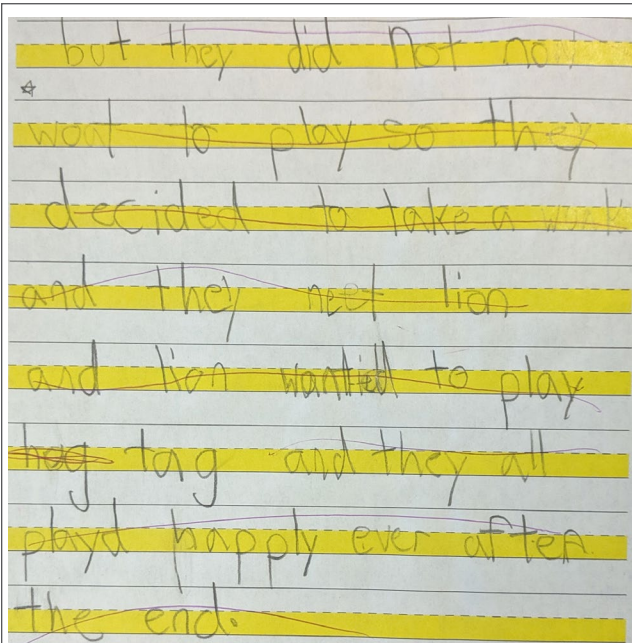 but they did not no
wout to play so they
decided to take a walk
and they met lion
and lion wantied to play
tag and they all
playd happly ever after
the end.